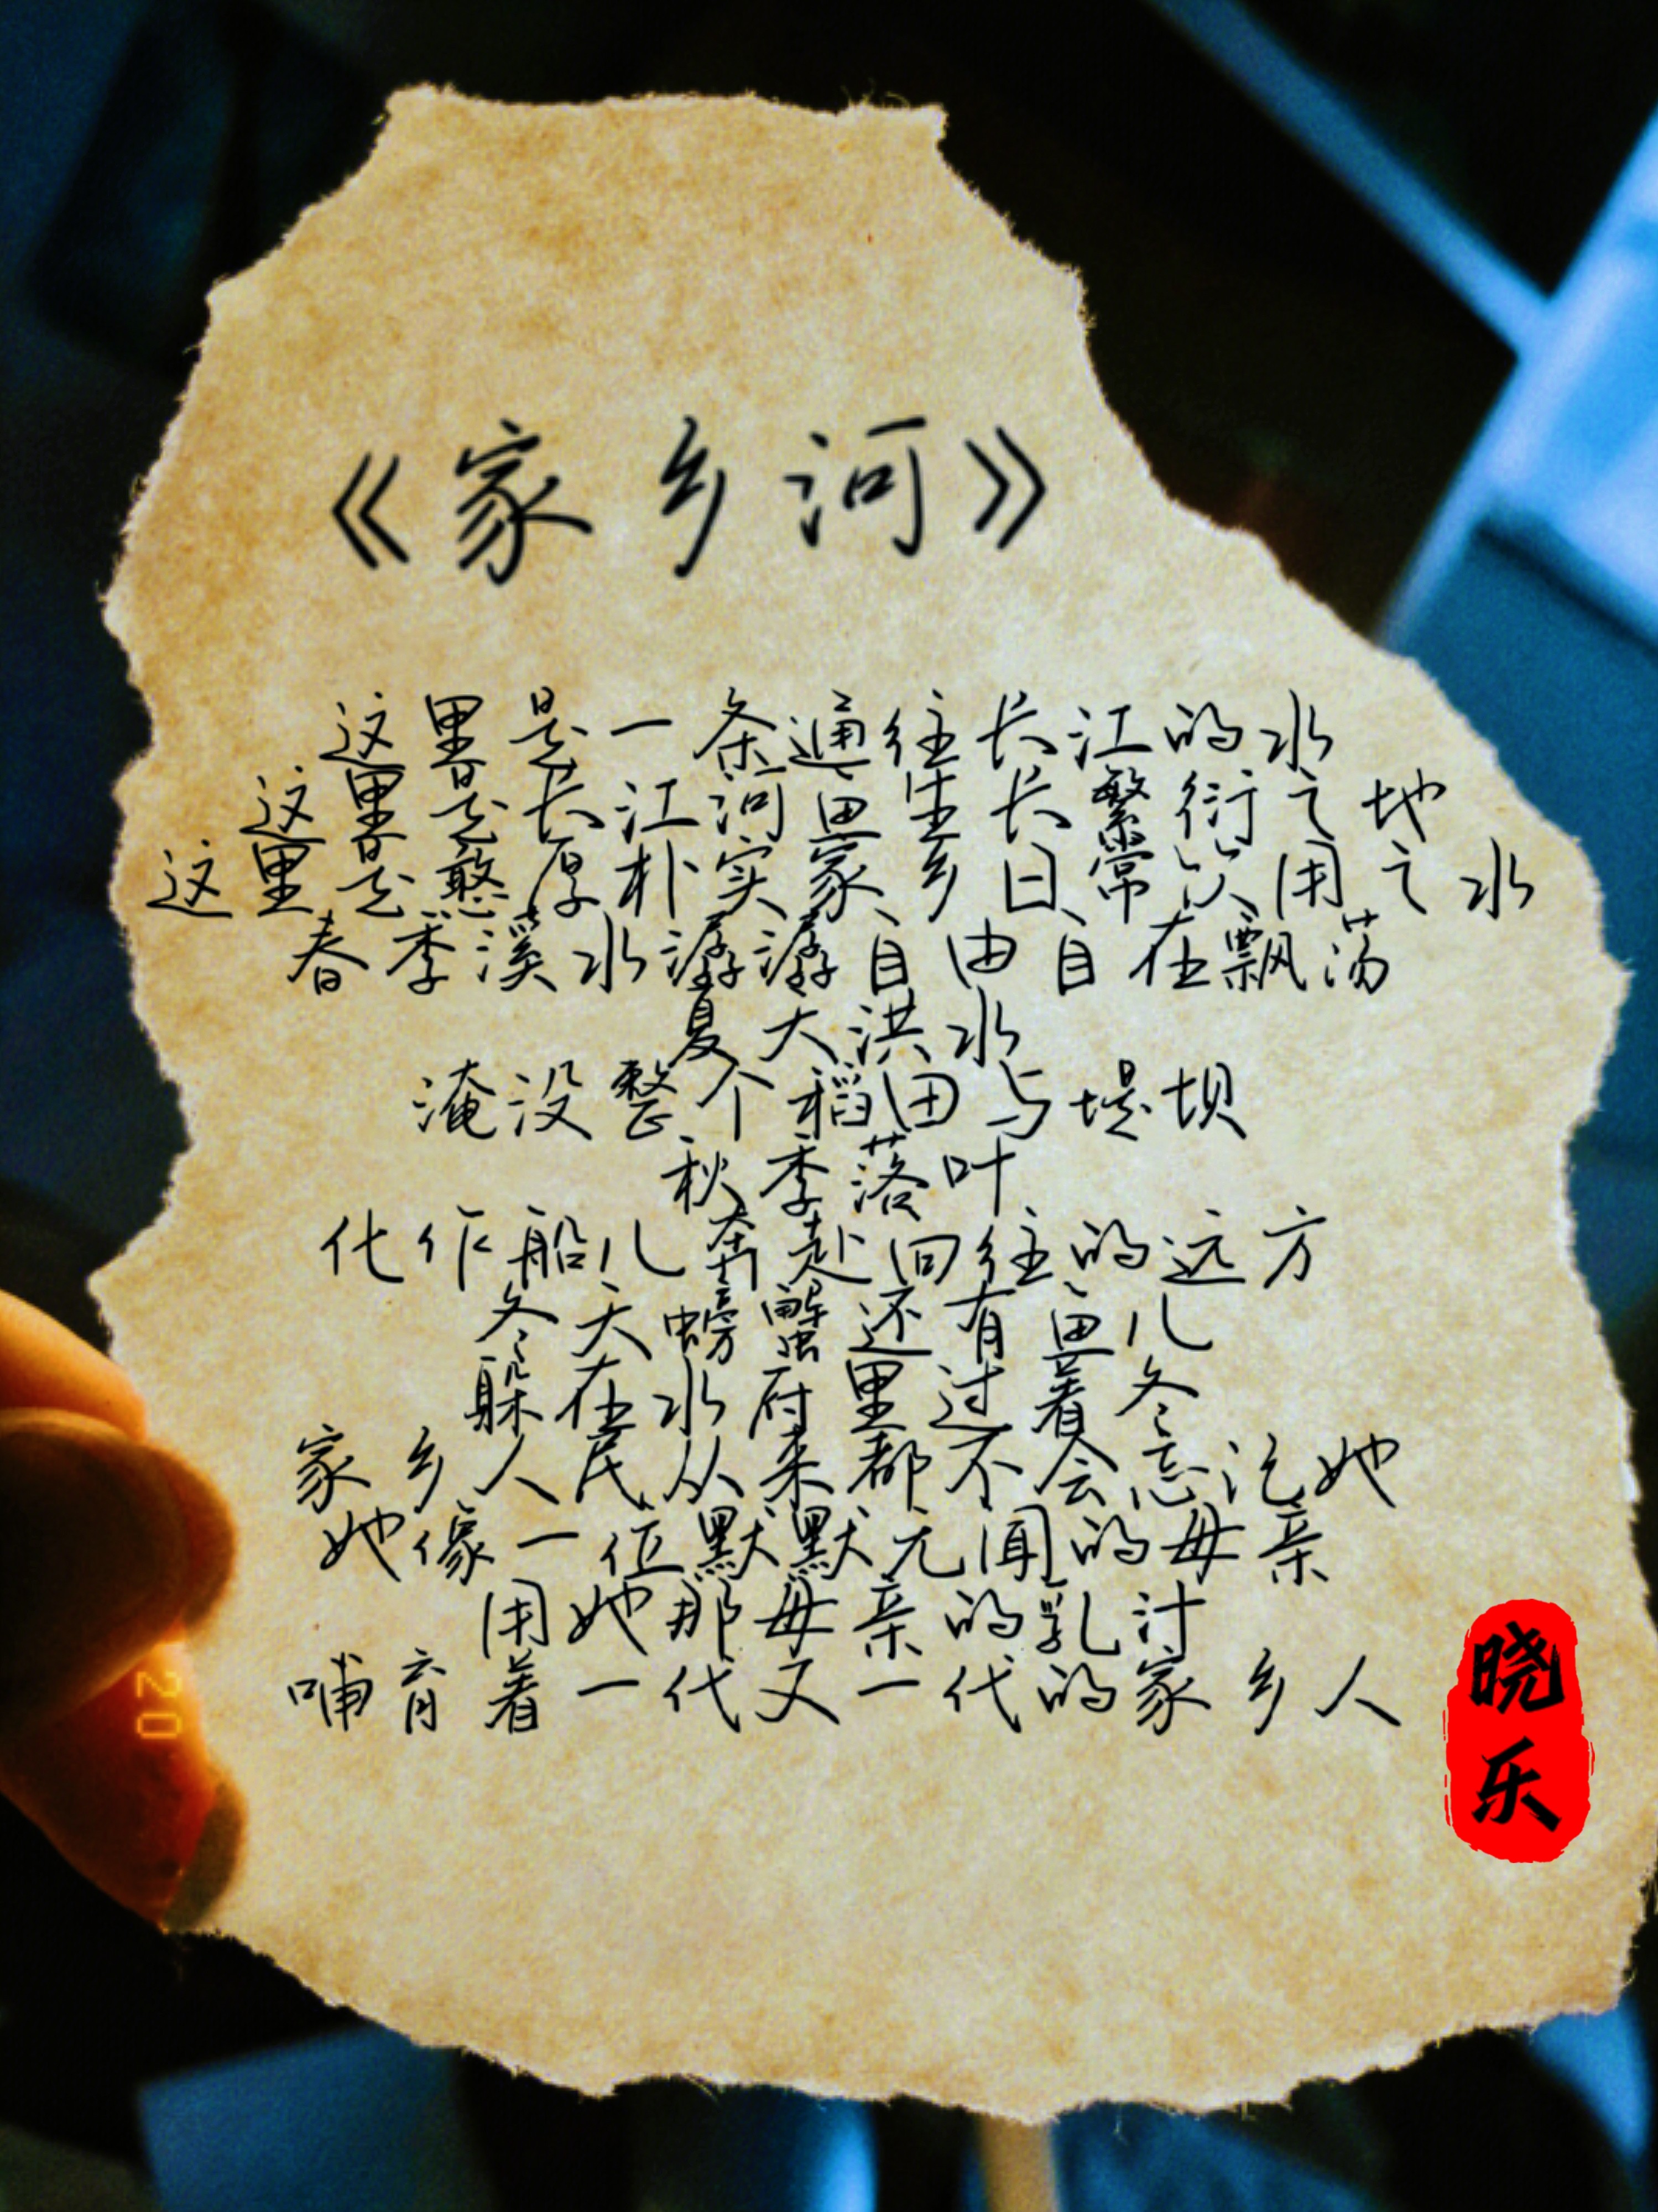 《家乡河》
这里是一条通往长江的水
这里是长江河鱼生长繁衍之地
这里是憨厚朴实家乡日常饮用之水
春季溪水潺潺自由自在飘荡
夏大洪水
淹没整个稻田与堤坝
秋季落叶
化作船儿奔赴向往的远方
冬天螃蟹还有鱼儿
躲在水府里过着冬
家乡人民从来都不会忘记她
她像一位默默无闻的母亲
用她那母亲的乳汁
哺育着一代又一代的家乡人
晓乐
20